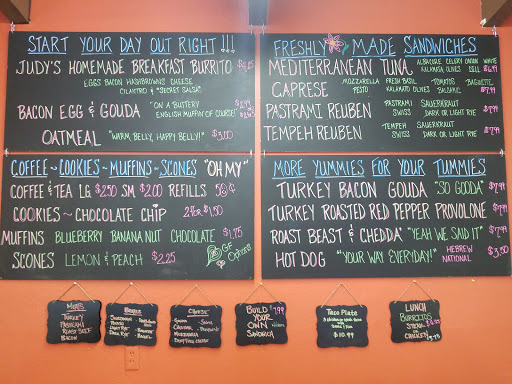 START YOUR DAY OUT RIGHT !!!
JUDY'S HOMEMADE BREAKFAST BURRITO
EGGS BACON HASHBROWNS CHEESE
CILANTRO & "SECRET SALSA"
BACON EGG & GOUDA "ON A BUTTERY
ENGLISH MUFFIN OF COURSE!"
OATMEAL "WARM, BELLY, HAPPY BELLY!" $3.00
FRESHLY MADE SANDWICHES
MEDITERRANEAN TUNA ALBACORE CELERY ONION
KALAMATA OLIVES $6.99
CAPRESE MOZZARELLA FRESH BASIL TOMATOES BAGUETTE
PESTO KALAMATA OLIVES BALSAMIC $7.99
PASTRAMI REUBEN PASTRAMI SAUERKRAUT
SWISS DARK OR LIGHT RYE $7.99
TEMPEH REUBEN TEMPEH SAUERKRAUT
SWISS DARK OR LIGHT RYE $7.99
COFFEE ~ COOKIES ~ MUFFINS ~ SCONES "OH MY"
COFFEE & TEA LG $2.50 SM $2.00 REFILLS 50¢
COOKIES ~ CHOCOLATE CHIP 2 for $1.50
MUFFINS BLUEBERRY BANANA NUT CHOCOLATE $1.75
SCONES LEMON & PEACH $2.25
GF
Options
MORE YUMMIES FOR YOUR TUMMIES
TURKEY BACON GOUDA "SO GOODA" $7.99
TURKEY ROASTED RED PEPPER PROVOLONE $7.99
ROAST BEAST & CHEDDA' "YEAH WE SAID IT" $7.99
HOT DOG "YOUR WAY EVERYDAY!" HEBREW
NATIONAL $3.50
MEATS
TURKEY
PASTRAMI
ROAST BEEF
BACON
BREADS
CHEESE
BUILD 7.99
YOUR
OWN
SANDWICH
Taco Plate
$10.99
LUNCH
BURRITOS
STEAK
OR
CHICKEN